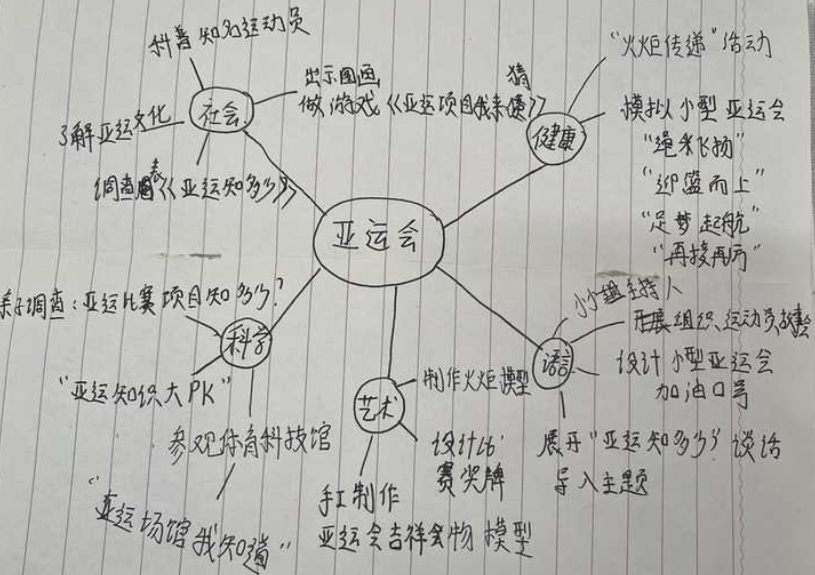 亚运会
社会
科普知名运动员
出示图画
做游戏《亚运项目我来猜》
了解亚运文化
调查表《亚运知多少》
健康
"火炬传递"活动
模拟小型亚运会
"绳彩飞扬"
"迎篮而上"
"足梦起航"
"再接再厉"
语言
小小主持人
开展组织运动员故事会
设计小型亚运会
加油口号
展开"亚运知多少"谈话
导入主题
艺术
制作火炬模型
设计比
赛奖牌
手工制作
亚运会吉祥物模型
科学
亲子调查：亚运比赛项目知多少？
"亚运知识大PK"
参观体育科技馆
"亚运场馆我知道"